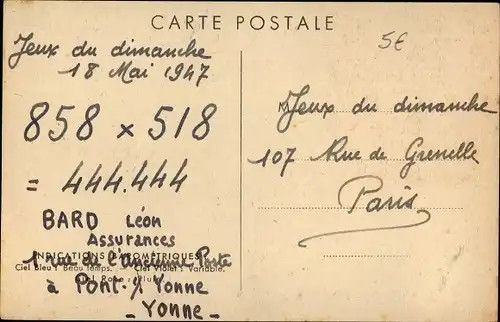 CARTE POSTALE
5€
Jeux du dimanche
18 Mai 1947
858 x 518
= 444.444
BARD Léon
Assurances
INDICATIONS BAROMÉTRIQUES
1 rue de l'Ancienne Poste
Ciel Bleu : Beau temps. — Ciel Violet : Variable.
à Pont s/ Yonne
- Yonne -
M Jeux du dimanche
107 Rue de Grenelle
Paris